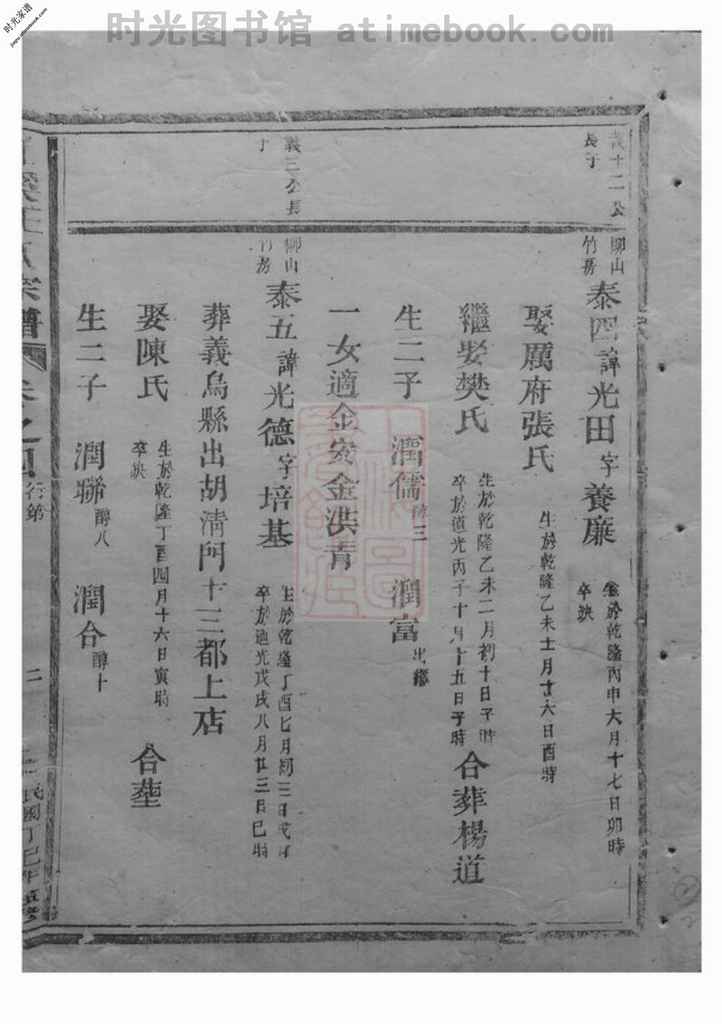 时光图书馆 atimebook.com
时光家谱
義十二公
長子
柳山
竹房
泰四諱光田字養廉
生於乾隆丙申六月十七日卯時
卒缺
娶厲府張氏
生於乾隆乙未十一月廿六日酉時
繼娶樊氏
生於乾隆乙未二月初十日子時
卒於道光丙子十月十五日子時
合葬楊道
生二子 潤儒 三 潤富 出繼
一女適金安金洪青
義三公長
子
柳山
竹房
泰五諱光德字培基
生於乾隆丁酉七月初三日戌時
卒於道光戊戌八月廿三日巳時
葬義烏縣出胡清門十三都上店
娶陳氏
生於乾隆丁酉四月十六日寅時
卒缺
合塋
生二子 潤聯 醇八 潤合 醇十
宗譜 卷之四 行第 二 民國丁巳年重修